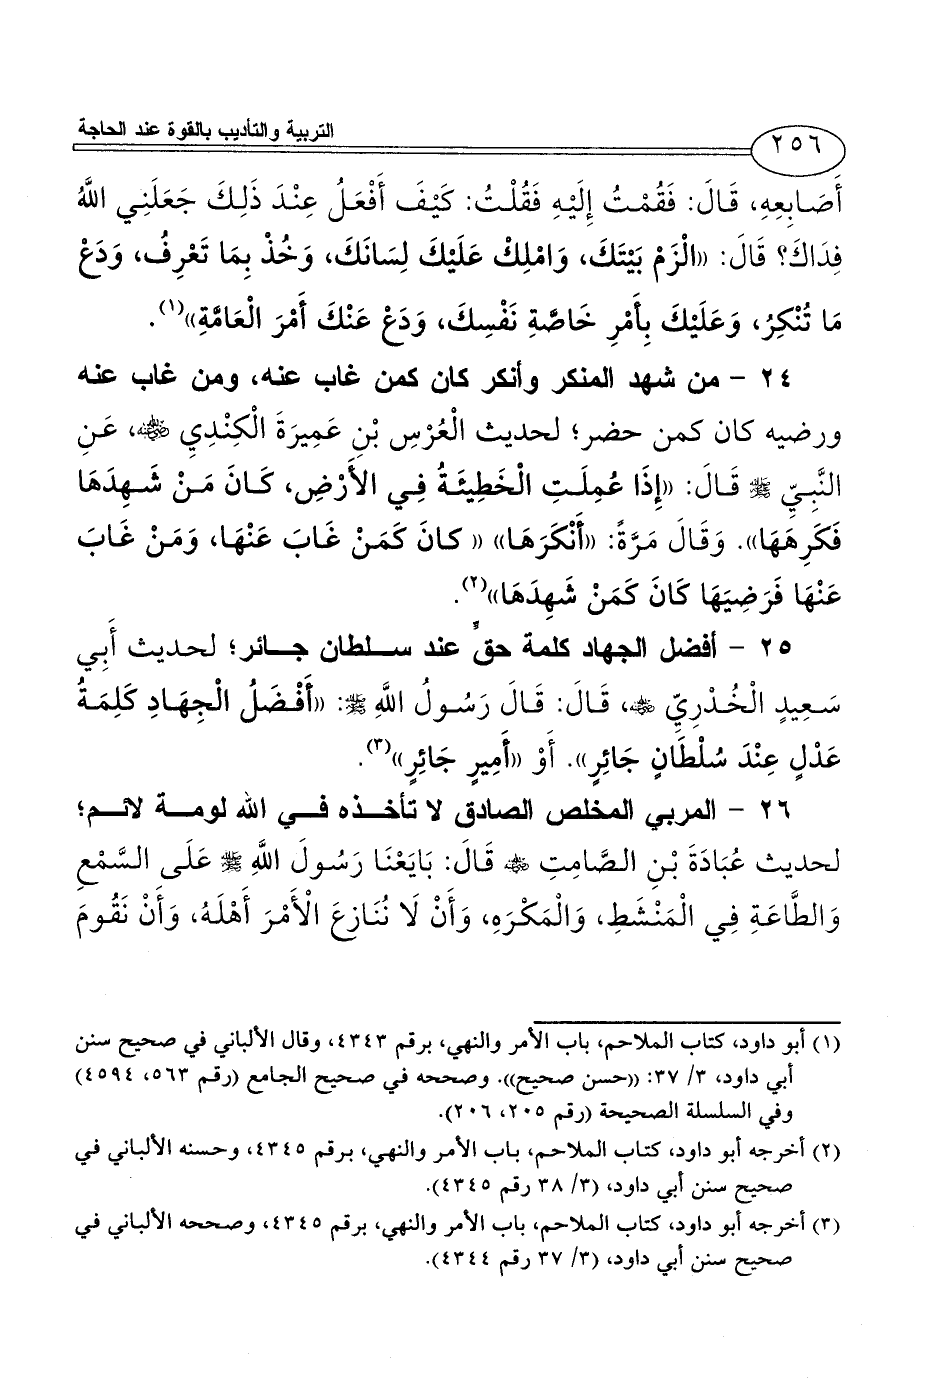 التربية والتأديب بالقوة عند الحاجة
٢٥٦
أَصَابِعِهِ، قَالَ: فَقُمْتُ إِلَيْهِ فَقُلْتُ: كَيْفَ أَفْعَلُ عِنْدَ ذَلِكَ جَعَلَنِي اللَّهُ
فِدَاكَ؟ قَالَ: «الْزَمْ بَيْتَكَ، وَامْلِكْ عَلَيْكَ لِسَانَكَ، وَخُذْ بِمَا تَعْرِفُ، وَدَعْ
مَا تُنْكِرُ، وَعَلَيْكَ بِأَمْرِ خَاصَّةِ نَفْسِكَ، وَدَعْ عَنْكَ أَمْرَ الْعَامَّةِ»(١).
٢٤ - من شهد المنكر وأنكر كان كمن غاب عنه، ومن غاب عنه
ورضيه كان كمن حضر؛ لحديث الْعُرْسِ بْنِ عَمِيرَةَ الْكِنْدِيِ ﵁، عَنِ
النَّبِيِّ ﷺ قَالَ: «إِذَا عُمِلَتِ الْخَطِيئَةُ فِي الأَرْضِ، كَانَ مَنْ شَهِدَهَا
فَكَرِهَهَا». وَقَالَ مَرَّةً: «أَنْكَرَهَا» « كانَ كَمَنْ غَابَ عَنْهَا، وَمَنْ غَابَ
عَنْهَا فَرَضِيَهَا كَانَ كَمَنْ شَهِدَهَا»(٢).
٢٥ - أفضل الجهاد كلمة حقٍّ عند سلطان جائر؛ لحديث أَبِي
سَعِيدٍ الْخُدْرِيِّ ﵁، قَالَ: قَالَ رَسُولُ اللَّهِ ﷺ: «أَفْضَلُ الْجِهَادِ كَلِمَةُ
عَدْلٍ عِنْدَ سُلْطَانٍ جَائِرٍ». أَوْ «أَمِيرٍ جَائِرٍ»(٣).
٢٦ - المربي المخلص الصادق لا تأخذه في الله لومة لائم؛
لحديث عُبَادَةَ بْنِ الصَّامِتِ ﵁ قَالَ: بَايَعْنَا رَسُولَ اللَّهِ ﷺ عَلَى السَّمْعِ
وَالطَّاعَةِ فِي الْمَنْشَطِ، وَالْمَكْرَهِ، وَأَنْ لَا نُنَازِعَ الْأَمْرَ أَهْلَهُ، وَأَنْ نَقُومَ
(١) أبو داود، كتاب الملاحم، باب الأمر والنهي، برقم ٤٣٤٣، وقال الألباني في صحيح سنن
أبي داود، ٣/ ٣٧: ((حسن صحيح)). وصححه في صحيح الجامع (رقم ٥٦٣، ٤٥٩٤)
وفي السلسلة الصحيحة (رقم ٢٠٥، ٢٠٦).
(٢) أخرجه أبو داود، كتاب الملاحم، باب الأمر والنهي، برقم ٤٣٤٥، وحسنه الألباني في
صحيح سنن أبي داود، (٣/ ٣٨ رقم ٤٣٤٥).
(٣) أخرجه أبو داود، كتاب الملاحم، باب الأمر والنهي، برقم ٤٣٤٥، وصححه الألباني في
صحيح سنن أبي داود، (٣/ ٣٧ رقم ٤٣٤٤).